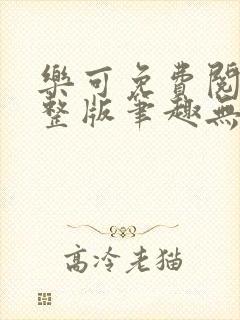 樂可免費閱
整版筆趣無
高冷老猫